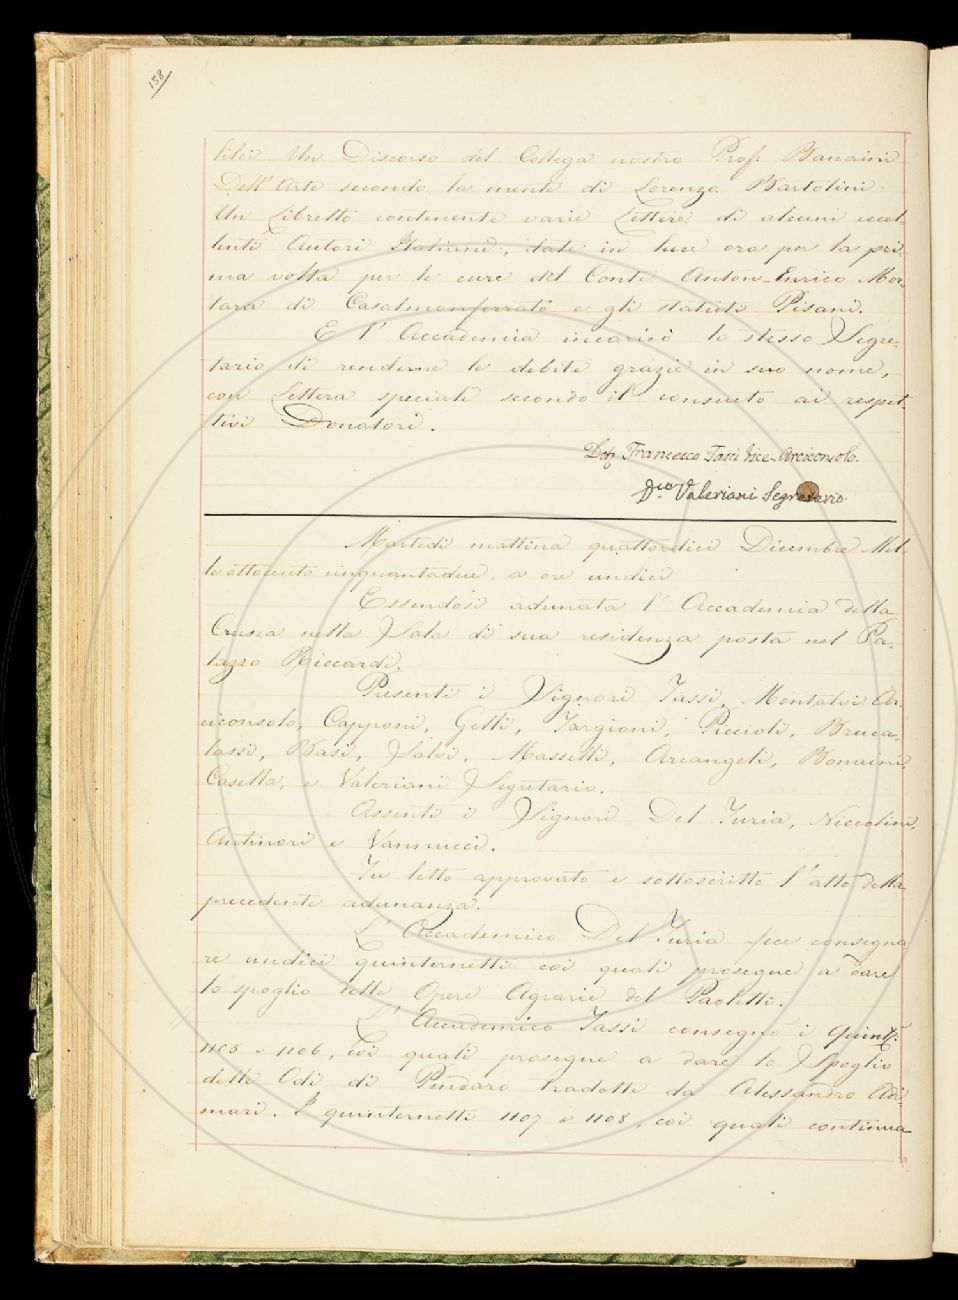 158
lilei Un Discorso del Collega nostro Prof. Bonaini
Dell' Arte secondo la mente di Lorenzo Bartolini.
Un Libretto contenente varie Lettere di alcuni eccel-
lenti Autori Italiani, date in luce ora per la pri-
ma volta per le cure del Conte Anton-Enrico Mor-
tara di Casalmonferrato e gli statuti Pisani.
E l' Accademia incaricò lo stesso Segre-
tario di renderne le debite grazie in suo nome,
con Lettera speciale secondo il consueto ai respet-
tivi Donatori.
Francesco Tassi Vice-Arciconsolo.
Valeriani Segretario
Martedì mattina quattordici Dicembre Mil-
le ottocento cinquantadue, a ore undici
Essendosi adunata l' Accademia della
Crusca nella Sala di sua residenza posta nel Pa-
lazzo Riccardi.
Presenti i Signori Tassi, Montalvi Ar-
ciconsolo, Capponi, Gelli, Targioni, Piccioli, Bruca-
lassi, Basi, Salvi, Masselli, Arcangeli, Bonaini,
Casella, e Valeriani Segretario.
Assenti i Signori Del Furia, Niccolini,
Antinori e Vannucci.
Fu letto approvato e sottoscritto l' atto della
precedente adunanza.
L' Accademico Del Furia fece consegna-
re undici quinternetti coi quali prosegue a dare
lo spoglio delle Opere Agrarie del Paoletti.
L' Accademico Tassi consegnò i Quint.i
1105 e 1106, coi quali prosegue a dare lo Spoglio
delle Odi di Pindaro tradotte da Alessandro Adi-
mari. I quinternetti 1107 e 1108, coi quali continua